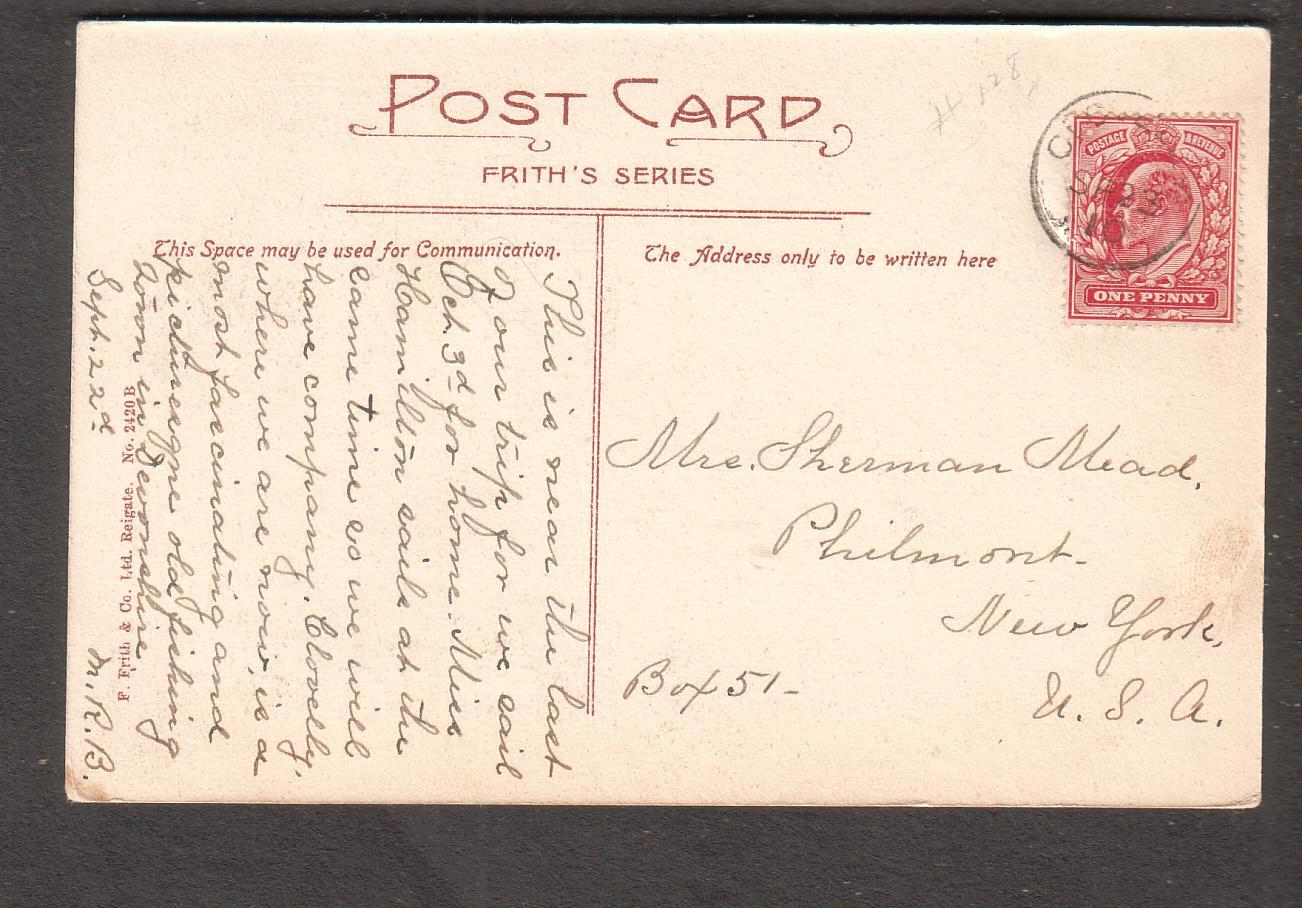 POST CARD
FRITH'S SERIES
# 128
This Space may be used for Communication.
The Address only to be written here
POSTAGE & REVENUE
ONE PENNY
SP 23
10
This is near the last
of our trip for we sail
Oct. 3d for home. Miss
Hamilton sails at the
same time so we will
have company. Clovelly,
where we are now, is a
most fascinating and
picturesque old fishing
town in Devonshire
Sept. 22d
M. R. B.
F. Frith & Co. Ltd. Reigate. No. 2420B
Mrs. Sherman Mead,
Philmont-
New York,
Box 51-
U. S. A.